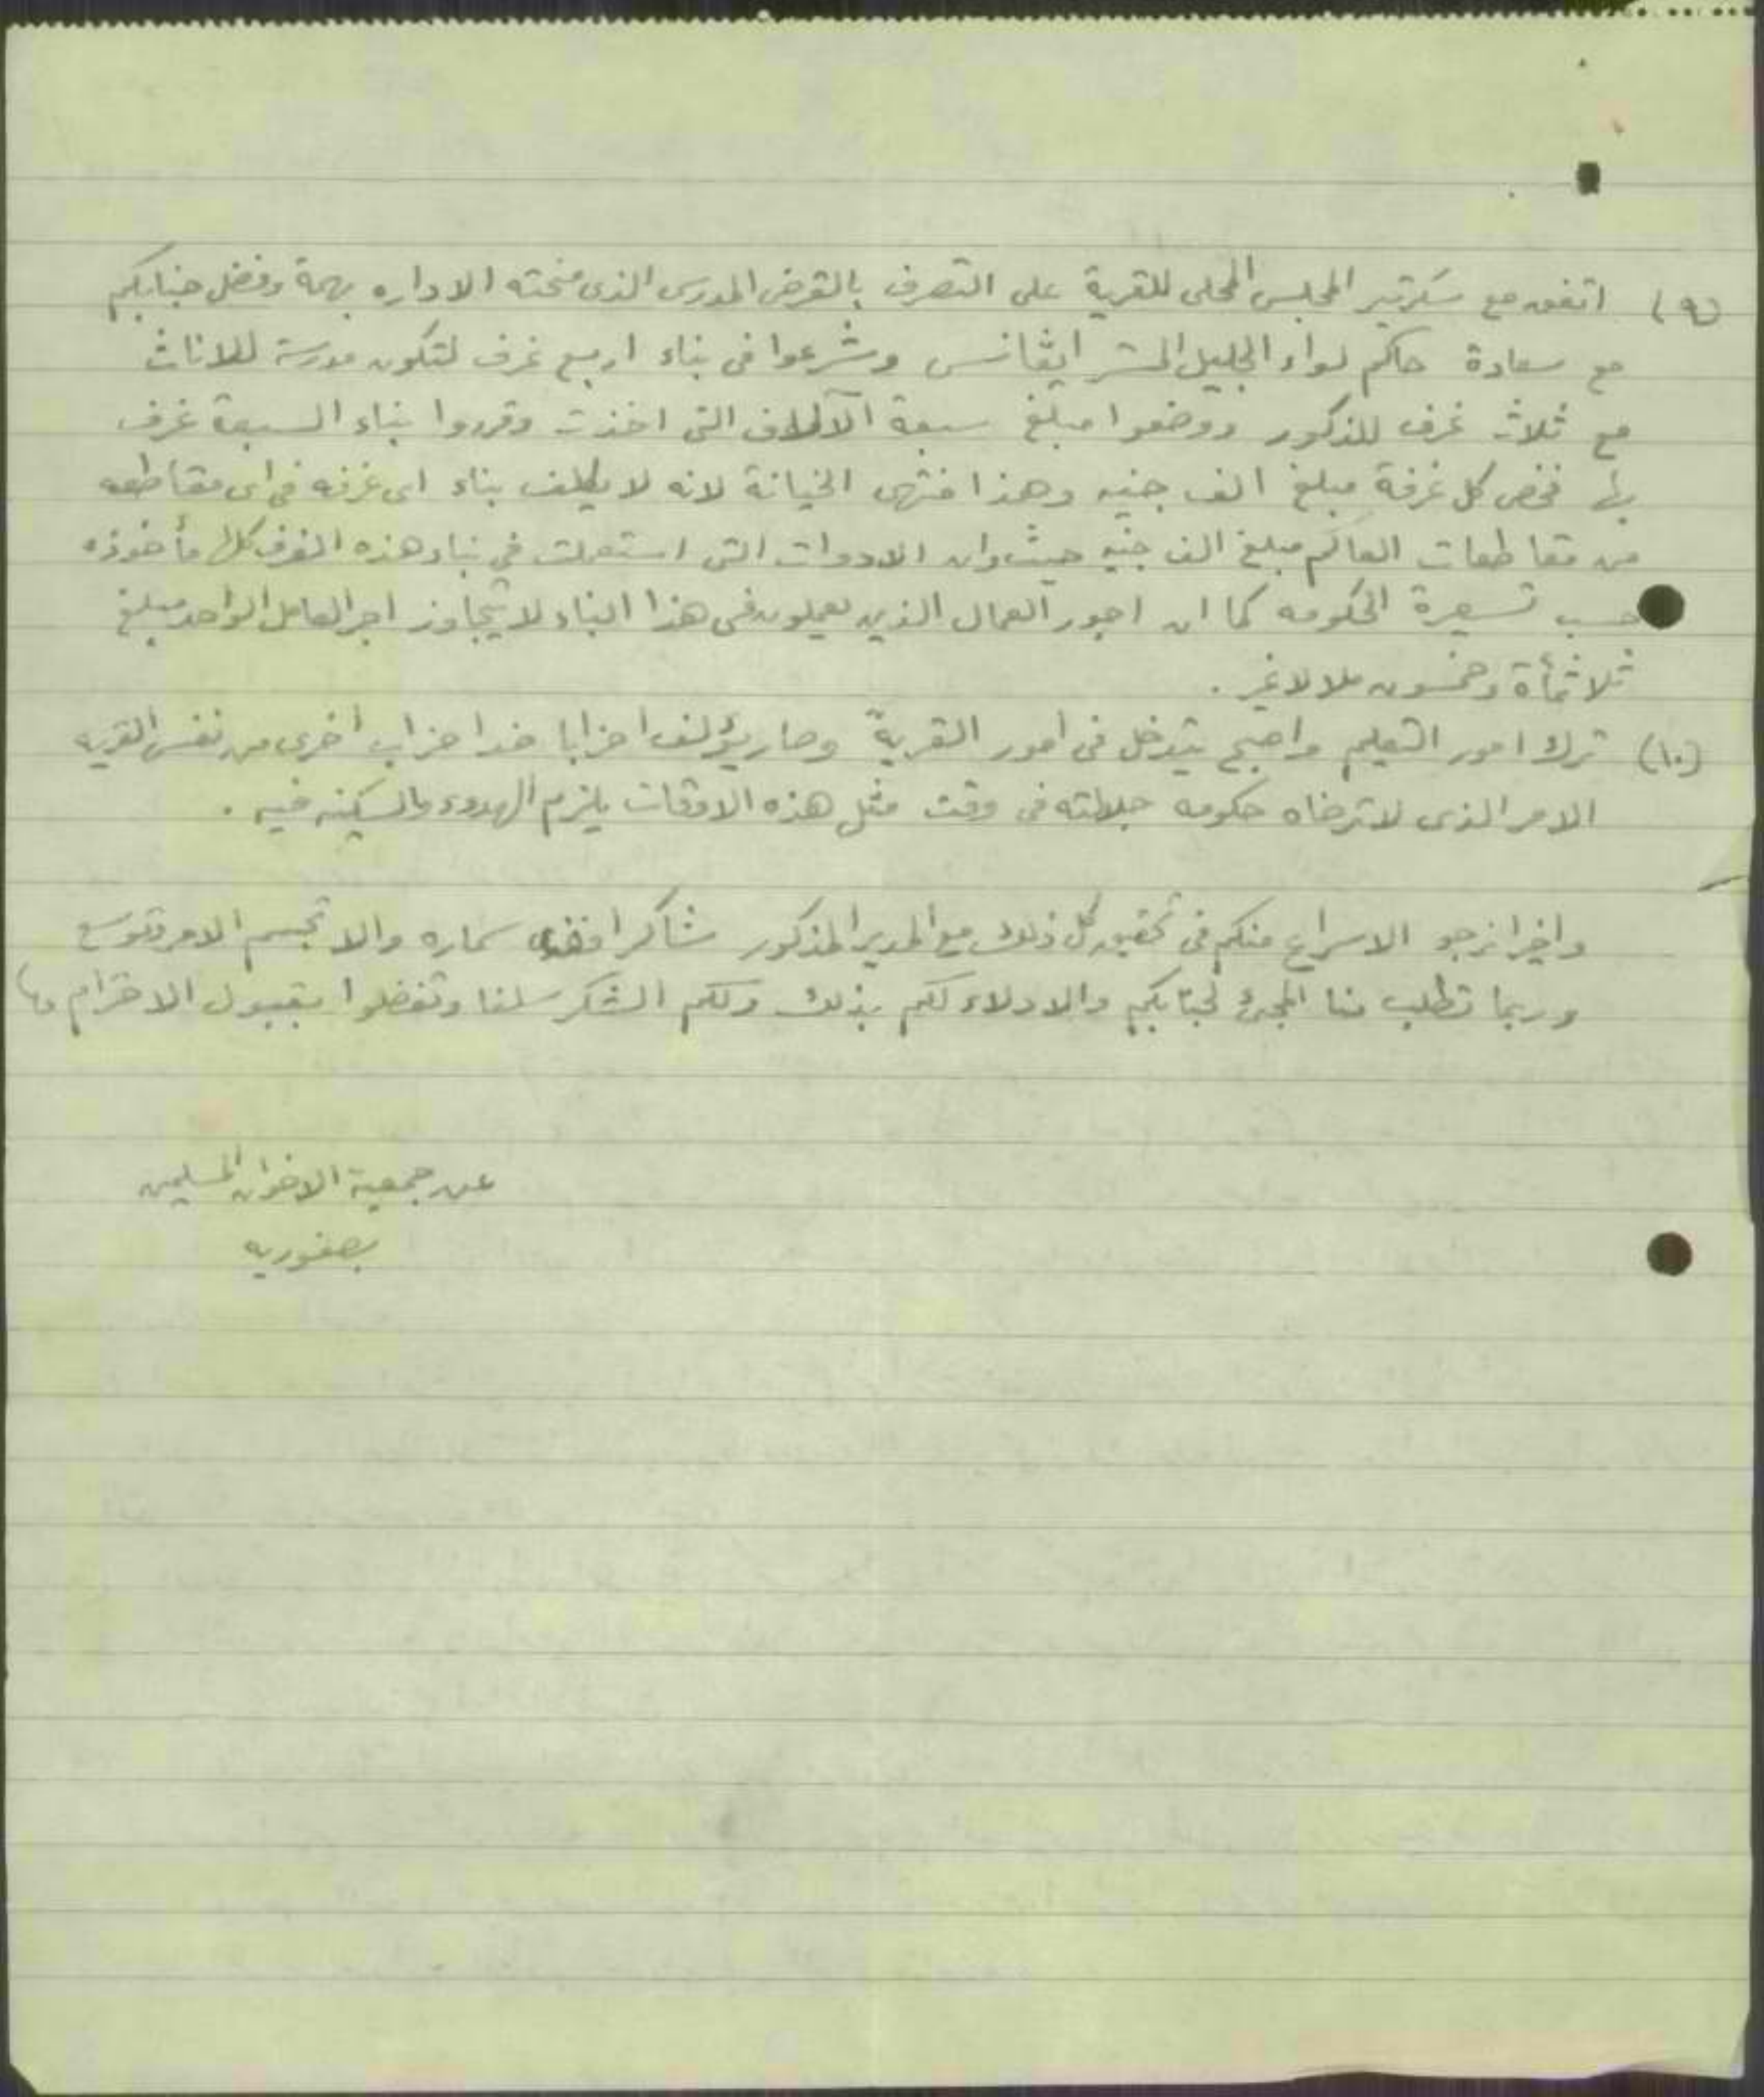 (٩) اتفق مع سكرتير المجلس المحلى للقرية على التصرف بالقرض المدرسى الذى منحته الاداره بهمة وفضل جنابكم
مع سعادة حاكم لواء الجليل المستر ايڤانس وشرعوا فى بناء اربع غرف لتكون مدرسة للاناث
مع ثلاث غرف للذكور ووضعوا مبلغ سبعة الآلاف التى اخذت وقرروا بناء السبعة غرف
بها فخص كل غرفة مبلغ الف جنيه وهذا منتهى الخيانة لانه لا يكلف بناء اى غرفه فى اى مقاطعه
من مقاطعات العالم مبلغ الف جنيه حيث وان الادوات التى استعملت فى بناء هذه الغرف كلها مأخوذه
حسب تسعيرة الحكومه كما ان اجور العمال الذين يعملون فى هذا البناء لا يتجاوز اجر العامل الواحد مبلغ
ثلاثمأة وخمسون ملا لا غير .
(١٠) ترك امور التعليم واصبح يتدخل فى امور القرية وصار يؤلف احزابا ضد احزاب أخرى من نفس القريه
الامر الذى لا ترضاه حكومه جلالته فى وقت مثل هذه الاوقات يلزم الهدوء والسكينه فيه .
واخيرا نرجو الاسراع منكم فى تحقيق كل ذلك مع المدير المذكور شاكر افندى سماره والا تجسم الامر وتوسع
وربما تطلب منا المجئ لجنابكم والادلاء لكم بذلك ولكم الشكر سلفا وتفضلوا بقبول الاحترام
عن جمعية الاخوان المسلمين
بصفوريه